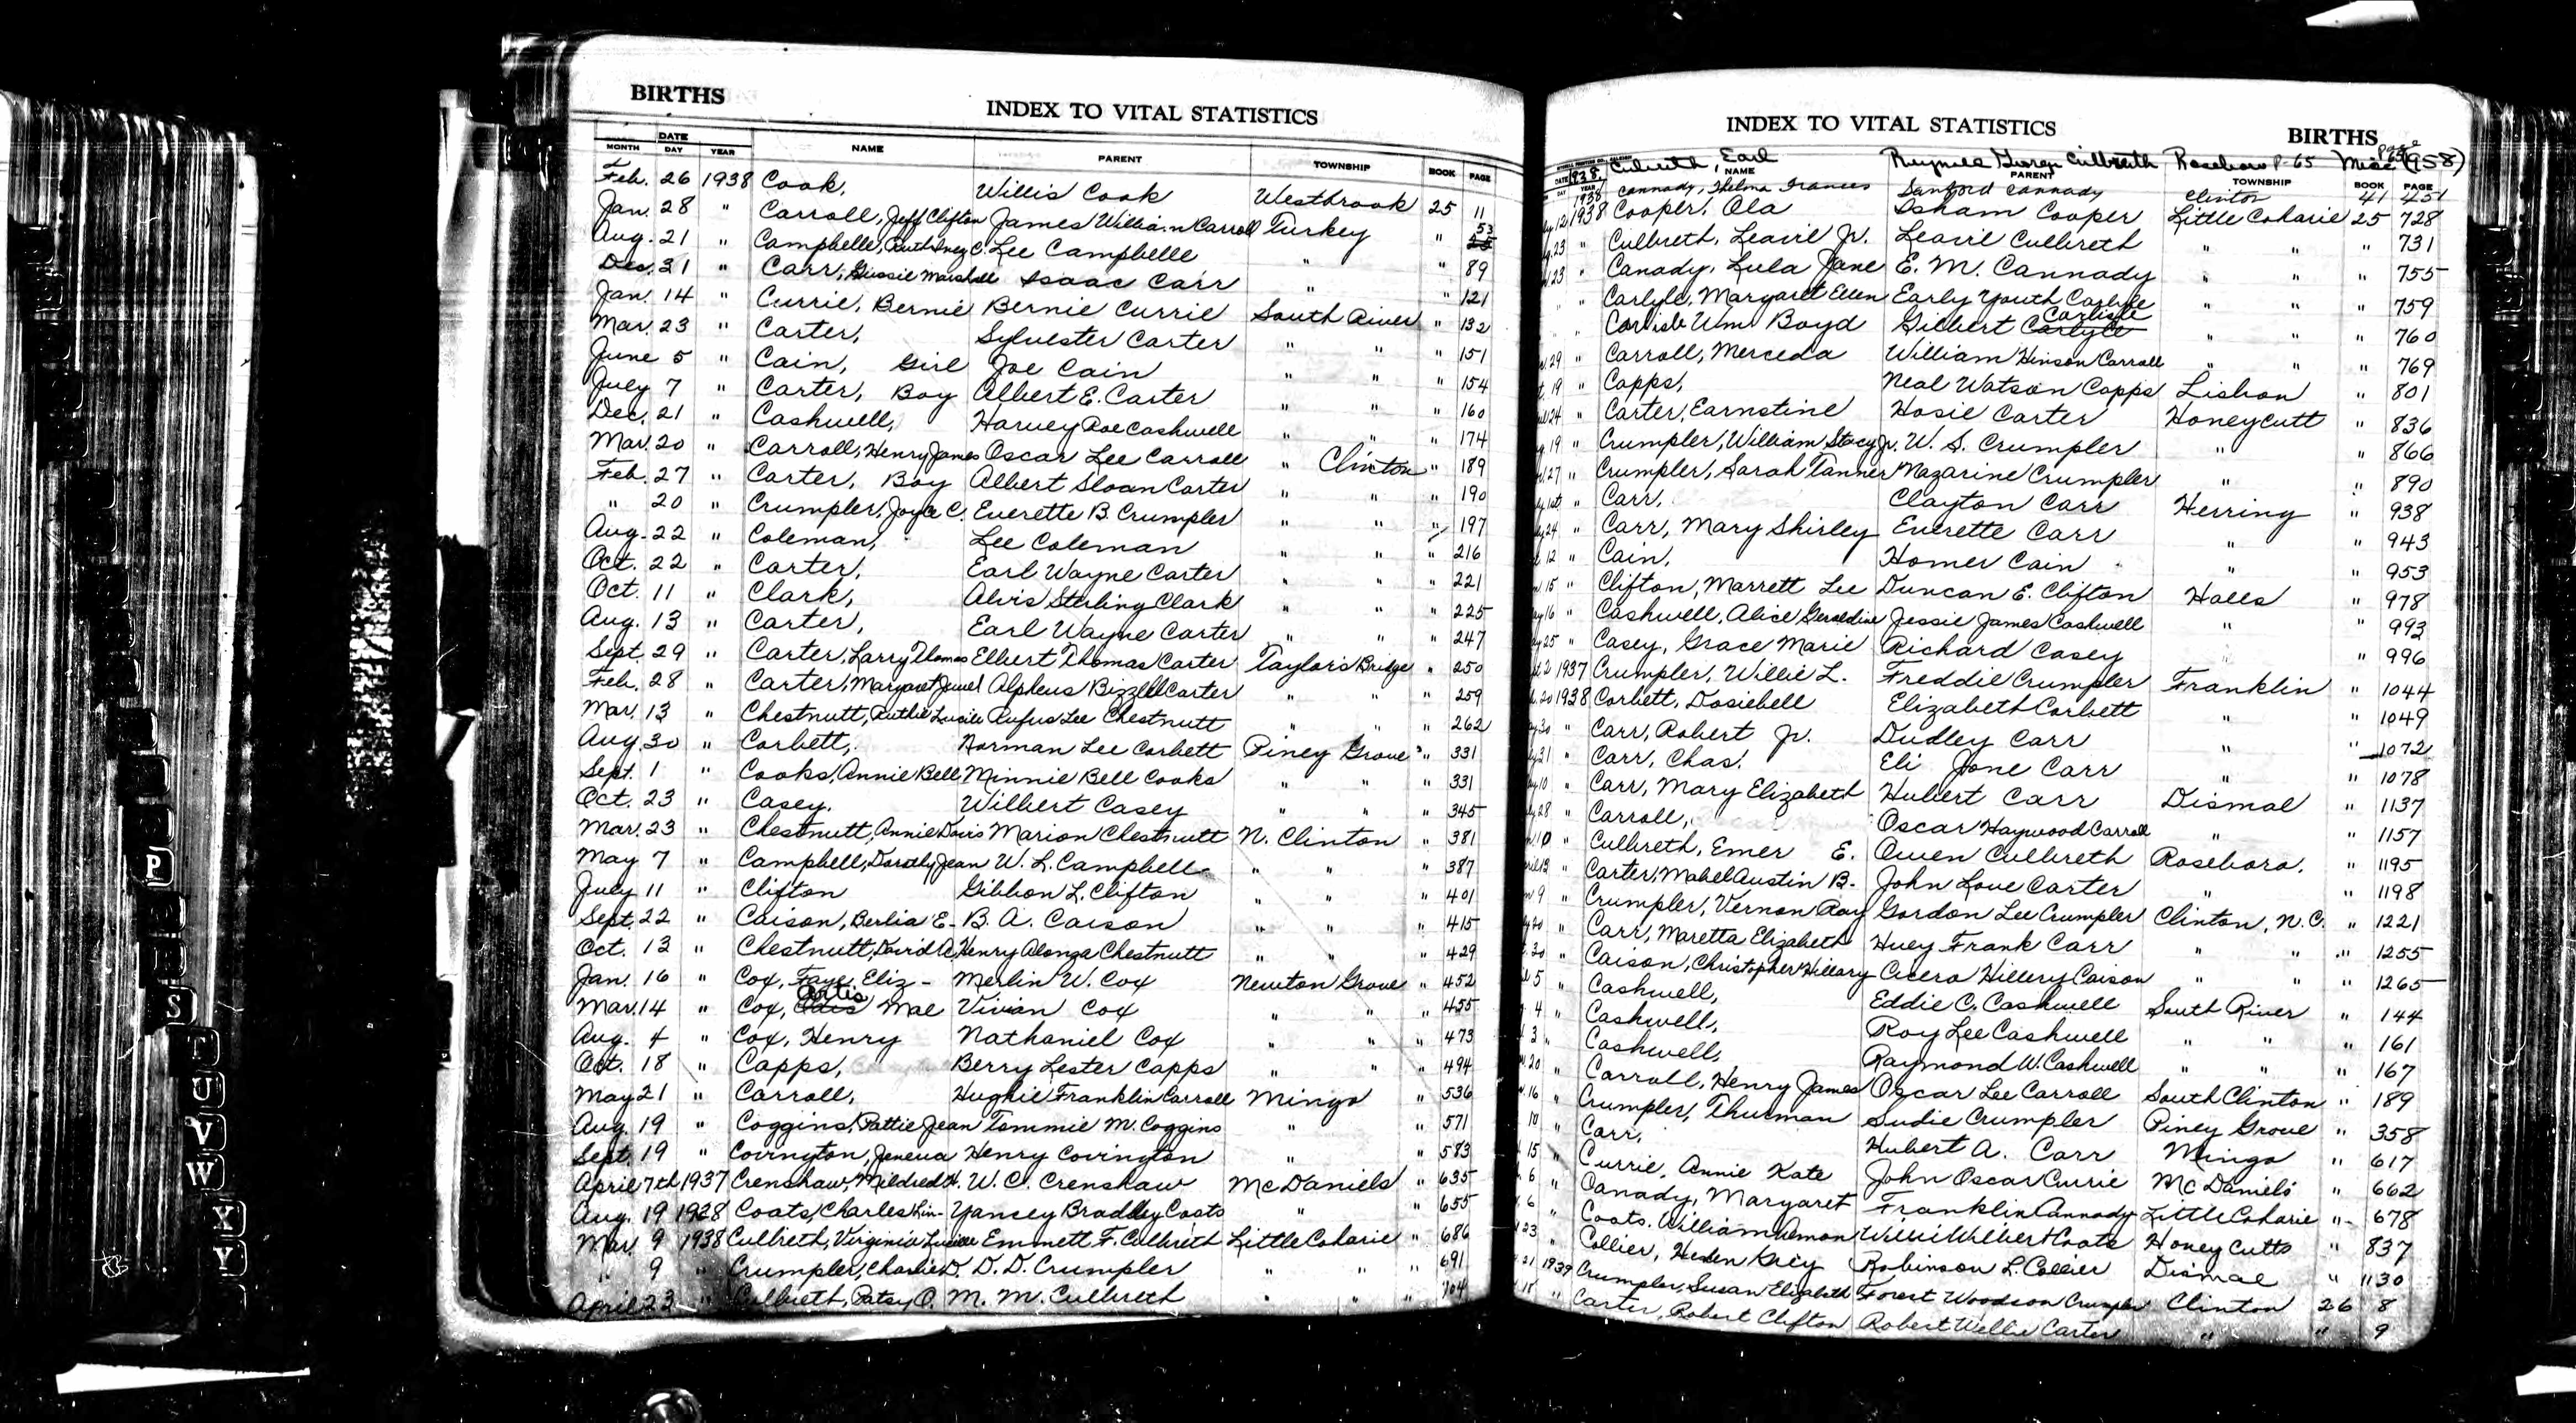 BIRTHS
INDEX TO VITAL STATISTICS
DATE
MONTH DAY YEAR NAME PARENT TOWNSHIP BOOK PAGE
Feb. 26 1938 Cook, Willis Cook Westbrook 25 11
Jan. 28 " Carroll, Jeff Clifton James William Carroll Turkey " 53
Aug. 21 " Campbelle, Ruth Inez C. Lee Campbelle " " 89
Dec. 31 " Carr, Gussie Marshall Isaac Carr " " 121
Jan. 14 " Currie, Bernie Bernie Currie South River " 132
Mar. 23 " Carter, Sylvester Carter " " " 151
June 5 " Cain, Girl Joe Cain " " " 154
July 7 " Carter, Boy Albert E. Carter " " " 160
Dec. 21 " Cashwell, Harvey Roe Cashwell " " " 174
Mar. 20 " Carroll, Henry James Oscar Lee Carroll " Clinton " 189
Feb. 27 " Carter, Boy Albert Sloan Carter " " " 190
" 20 " Crumpler, Joyce C. Everette B. Crumpler " " " 197
Aug. 22 " Coleman, Lee Coleman " " " 216
Oct. 22 " Carter, Earl Wayne Carter " " " 221
Oct. 11 " Clark, Alvis Sterling Clark " " " 225
Aug. 13 " Carter, Earl Wayne Carter " " " 247
Sept. 29 " Carter, Larry Thomas Elbert Thomas Carter Taylors Bridge " 250
Feb. 28 " Carter, Margaret Jewel Alpheus Bizzell Carter " " " 259
Mar. 13 " Chestnutt, Ruthie Lucile Rufus Lee Chestnutt " " " 262
Aug. 30 " Corbett, Norman Lee Corbett Piney Grove " 331
Sept. 1 " Cooks, Annie Bell Minnie Bell Cooks " " " 331
Oct. 23 " Casey. Wilbert Casey " " " 345
Mar. 23 " Chestnutt, Annie Doris Marion Chestnutt N. Clinton " 381
May 7 " Campbell, Dorothy Jean W. L. Campbell " " " 387
July 11 " Clifton Gibbon L. Clifton " " " 401
Sept. 22 " Caison, Berlia E. B. A. Caison " " " 415
Oct. 13 " Chestnutt, David A. Henry Alonza Chestnutt " " " 429
Jan. 16 " Cox, Faye Eliz- Merlin W. Cox Newton Grove " 452
Mar. 14 " Cox, Mae Vivian Cox " " " 455
Aug. 4 " Cox, Henry Nathaniel Cox " " " 473
Oct. 18 " Capps, Berry Lester Capps " " " 494
May 21 " Carroll, Hughie Franklin Carroll Mingo " 536
Aug. 19 " Coggins, Pattie Jean Tommie M. Coggins " " 571
Sept. 19 " Covington, Jeneva Henry Covington " " 583
April 7th 1937 Crenshaw, Mildred H. W. C. Crenshaw McDaniels " 635
Aug. 19 1928 Coats, Charles Lin- Yancey Bradley Coats " " 655
Mar. 9 1938 Culbreth, Virginia Lucille Emmett F. Culbreth Little Coharie " 686
" 9 " Crumpler, Charlie D. D. D. Crumpler " " " 691
April 23 " Culbreth, Patsy O. M. M. Culbreth " " " 704
P
S
T
U
V
W
X
Y
INDEX TO VITAL STATISTICS
BIRTHS
1938 Culbreth, Earl George Culbreth Roseboro P-65 Misc (958)
DATE DAY YEAR NAME PARENT TOWNSHIP BOOK PAGE
1938 Cannady, Thelma Frances Sanford Cannady Clinton 41 451
12 1938 Cooper, Ola Isham Cooper Little Coharie 25 728
23 " Culbreth, Leavie Jr. Leavie Culbreth " " " 731
23 " Canady, Lula Jane E. M. Cannady " " " 755
" Carlyle, Margaret Ellen Early Youth Carlyle " " " 759
Carlisle Wm Boyd Gilbert Carlyle Carlisle " " " 760
29 " Carroll, Merceda William Hinson Carroll " " " 769
19 " Capps, Neal Watson Capps Lisbon " 801
24 " Carter, Earnstine Hosie Carter Honeycutt " 836
19 " Crumpler, William Stacy Jr. W. S. Crumpler " " 866
27 " Crumpler, Sarah Tanner Nazarine Crumpler " " 890
" Carr, Clayton Carr Herring " 938
24 " Carr, Mary Shirley Everette Carr " " 943
12 " Cain, Homer Cain " " 953
15 " Clifton, Marrett Lee Duncan E. Clifton Halls " 978
16 " Cashwell, Alice Geraldine Jessie James Cashwell " " 993
25 " Casey, Grace Marie Richard Casey " " 996
2 1937 Crumpler, Willie L. Freddie Crumpler Franklin " 1044
20 1938 Corbett, Dosiebell Elizabeth Corbett " " 1049
30 " Carr, Robert Jr. Dudley Carr " " 1072
21 " Carr, Chas. Eli Jone Carr " " 1078
10 " Carr, Mary Elizabeth Hubert Carr Dismal " 1137
28 " Carroll, Oscar Haywood Carroll " " 1157
10 " Culbreth, Emer E. Owen Culbreth Roseboro, " 1195
13 " Carter, Mabel Austin B. John Love Carter " " 1198
9 " Crumpler, Vernon Ray Gordon Lee Crumpler Clinton, N.C. " 1221
20 " Carr, Maretta Elizabeth Huey Frank Carr " " " 1255
30 " Caison, Christopher Hillary Cicero Hillery Caison " " " 1265
5 " Cashwell, Eddie C. Cashwell South River " 144
4 " Cashwell, Roy Lee Cashwell " " " 161
3 " Cashwell, Raymond W. Cashwell " " " 167
20 " Carroll, Henry James Oscar Lee Carroll South Clinton " 189
16 " Crumpler, Thurman Sudie Crumpler Piney Grove " 358
10 " Carr, Hubert A. Carr Mingo " 617
15 " Currie, Annie Kate John Oscar Currie McDaniels " 662
6 " Canady, Margaret Franklin Cannady Little Coharie " 678
6 " Coats, William Willie Wilbert Coats Honeycutts " 837
23 " Collier, Robinson L. Collier Dismal " 1130
21 1939 Crumpler, Susan Elizabeth Forest Woodson Crumpler Clinton 26 8
18 " Carter, Robert Clifton Robert Wellie Carter " " 9